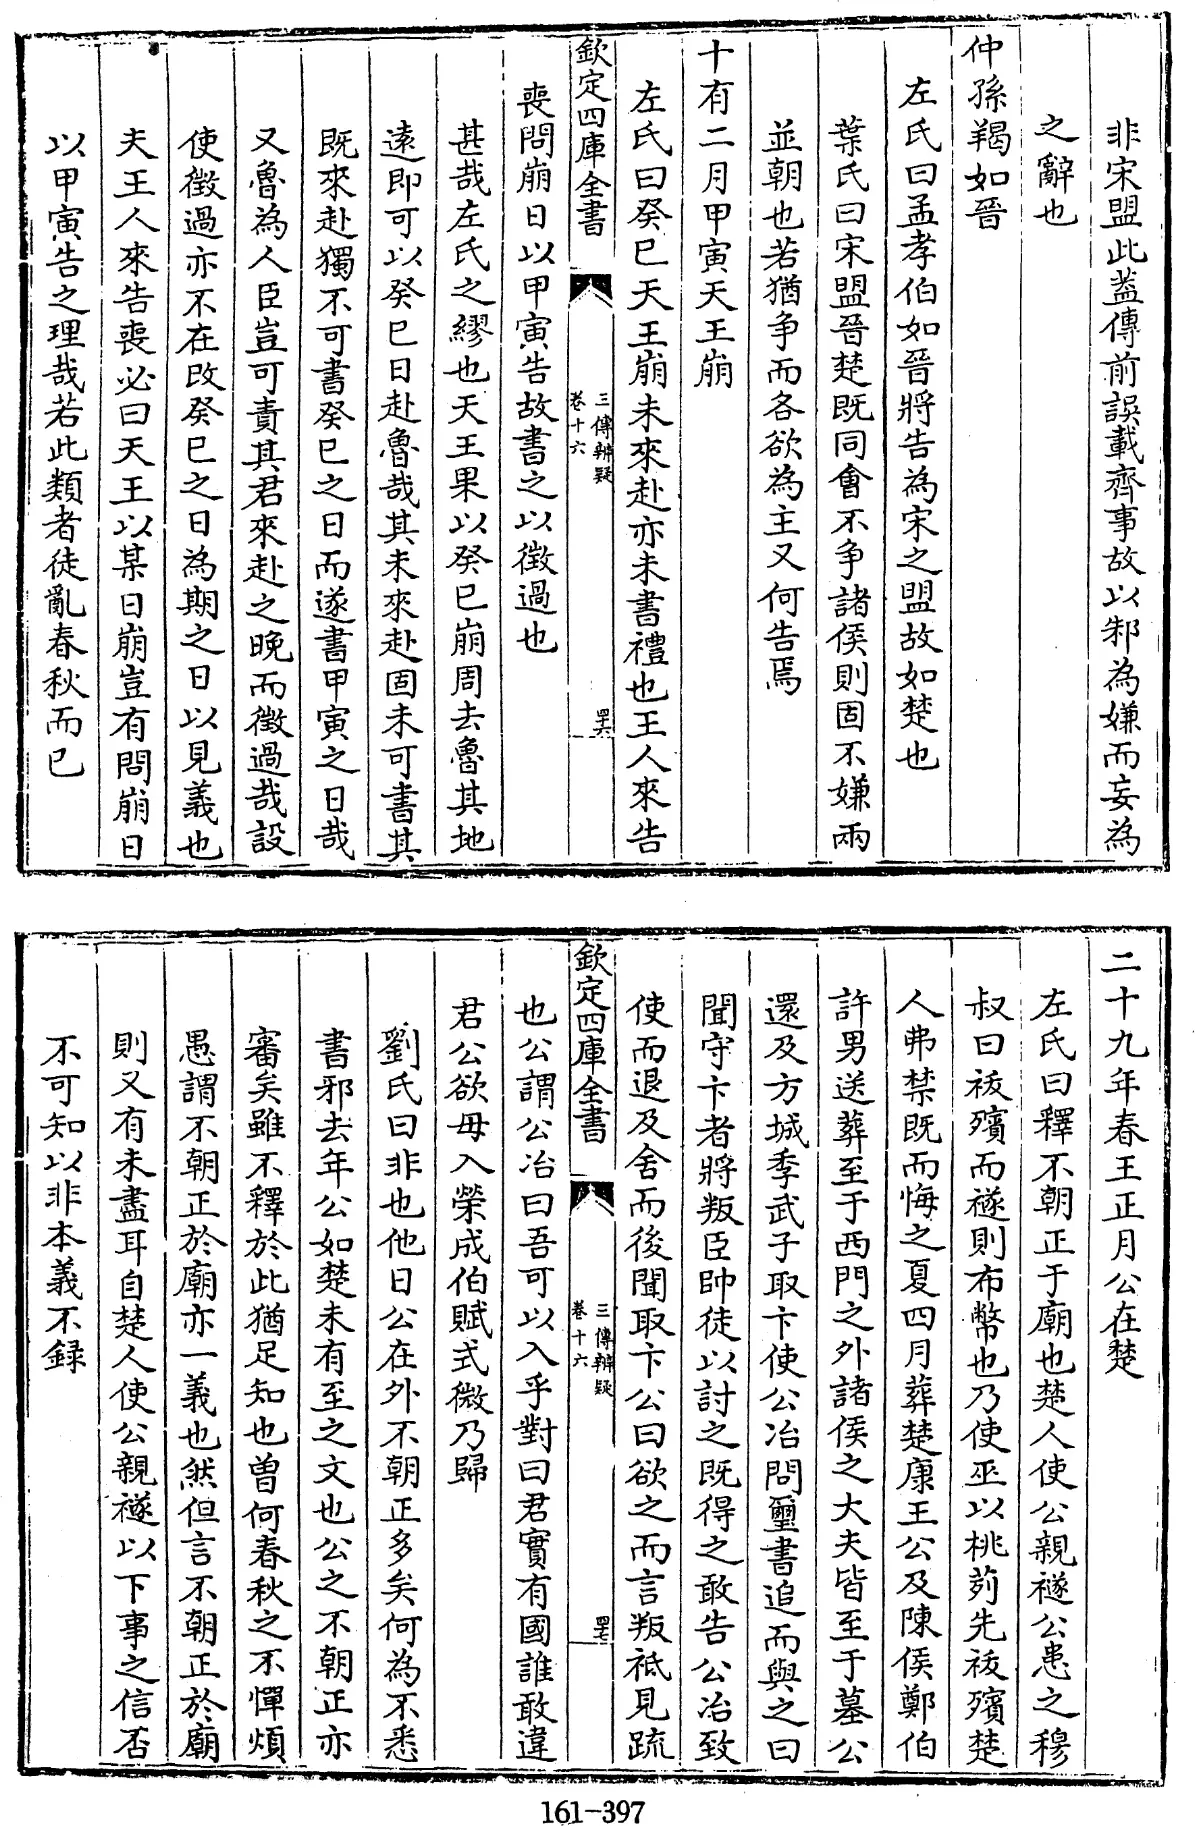 非宋盟此蓋傳前誤載齊事故以邾為嫌而妄為
之辭也
仲孫羯如晉
左氏曰孟孝伯如晉將告為宋之盟故如楚也
葉氏曰宋盟晉楚既同會不爭諸侯則固不嫌兩
並朝也若猶爭而各欲為主又何告焉
十有二月甲寅天王崩
左氏曰癸巳天王崩未來赴亦未書禮也王人來告
欽定四庫全書
三傳辨疑
卷十六
喪問崩日以甲寅告故書之以徵過也
甚哉左氏之繆也天王果以癸巳崩周去魯其地
遠即可以癸巳日赴魯哉其未來赴固未可書其
既來赴獨不可書癸巳之日而遂書甲寅之日哉
又魯為人臣豈可責其君來赴之晚而徵過哉設
使徵過亦不在改癸巳之日為期之日以見義也
夫王人來告喪必曰天王以某日崩豈有問崩日
以甲寅告之理哉若此類者徒亂春秋而已
二十九年春王正月公在楚
左氏曰釋不朝正于廟也楚人使公親襚公患之穆
叔曰祓殯而襚則布幣也乃使巫以桃茢先祓殯楚
人弗禁既而悔之夏四月葬楚康王公及陳侯鄭伯
許男送葬至于西門之外諸侯之大夫皆至于墓公
還及方城季武子取卞使公冶問璽書追而與之曰
聞守卞者將叛臣帥徒以討之既得之敢告公冶致
使而退及舍而後聞取卞公曰欲之而言叛祗見疏
欽定四庫全書
三傳辨疑
卷十六
也公謂公冶曰吾可以入乎對曰君實有國誰敢違
君公欲毋入榮成伯賦式微乃歸
劉氏曰非也他日公在外不朝正多矣何為不悉
書邪去年公如楚未有至之文也公之不朝正亦
審矣雖不釋於此猶足知也曾何春秋之不憚煩
愚謂不朝正於廟亦一義也然但言不朝正於廟
則又有未盡耳自楚人使公親襚以下事之信否
不可知以非本義不録
161-397